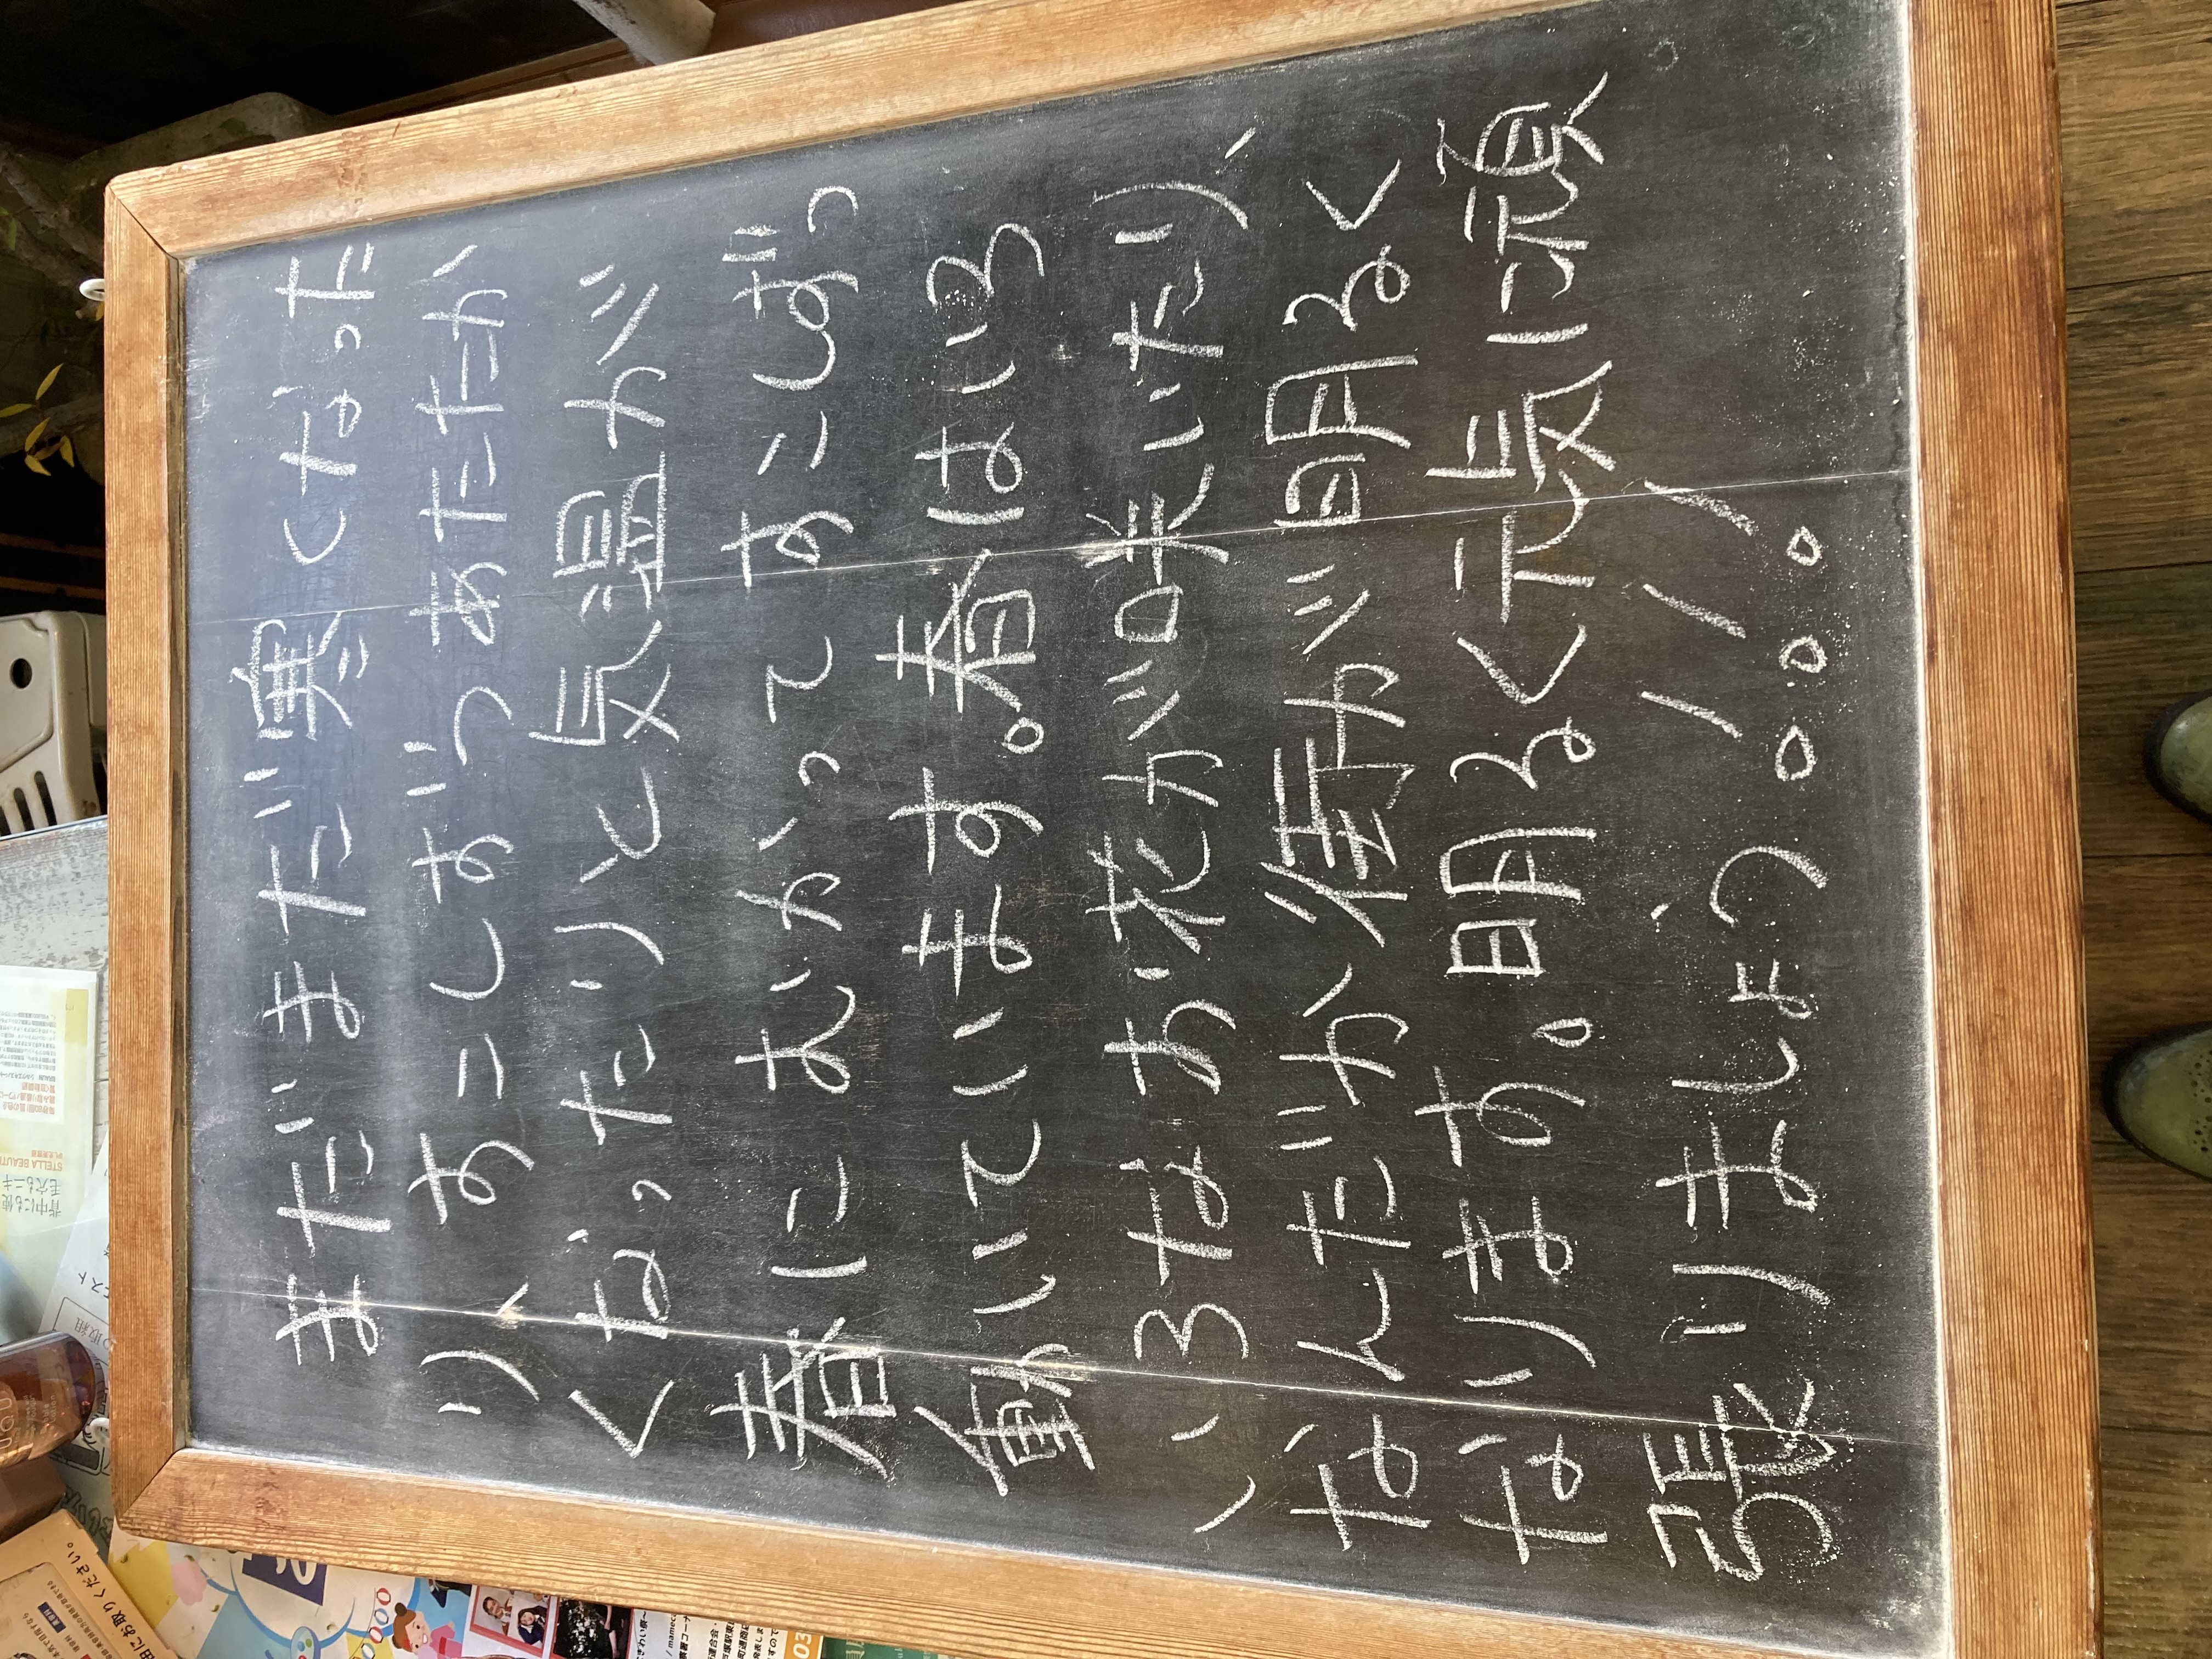 まだまだ寒くなった
り、すこしずつあたたか
くなったりと気温が
春にむかってすこしずつ
動いています。春はいろ
いろなお花が咲いたり、
なんだか街が明るく
なります。明るく元気に頑
張りましょう!!!
STELLA BEAUT
03